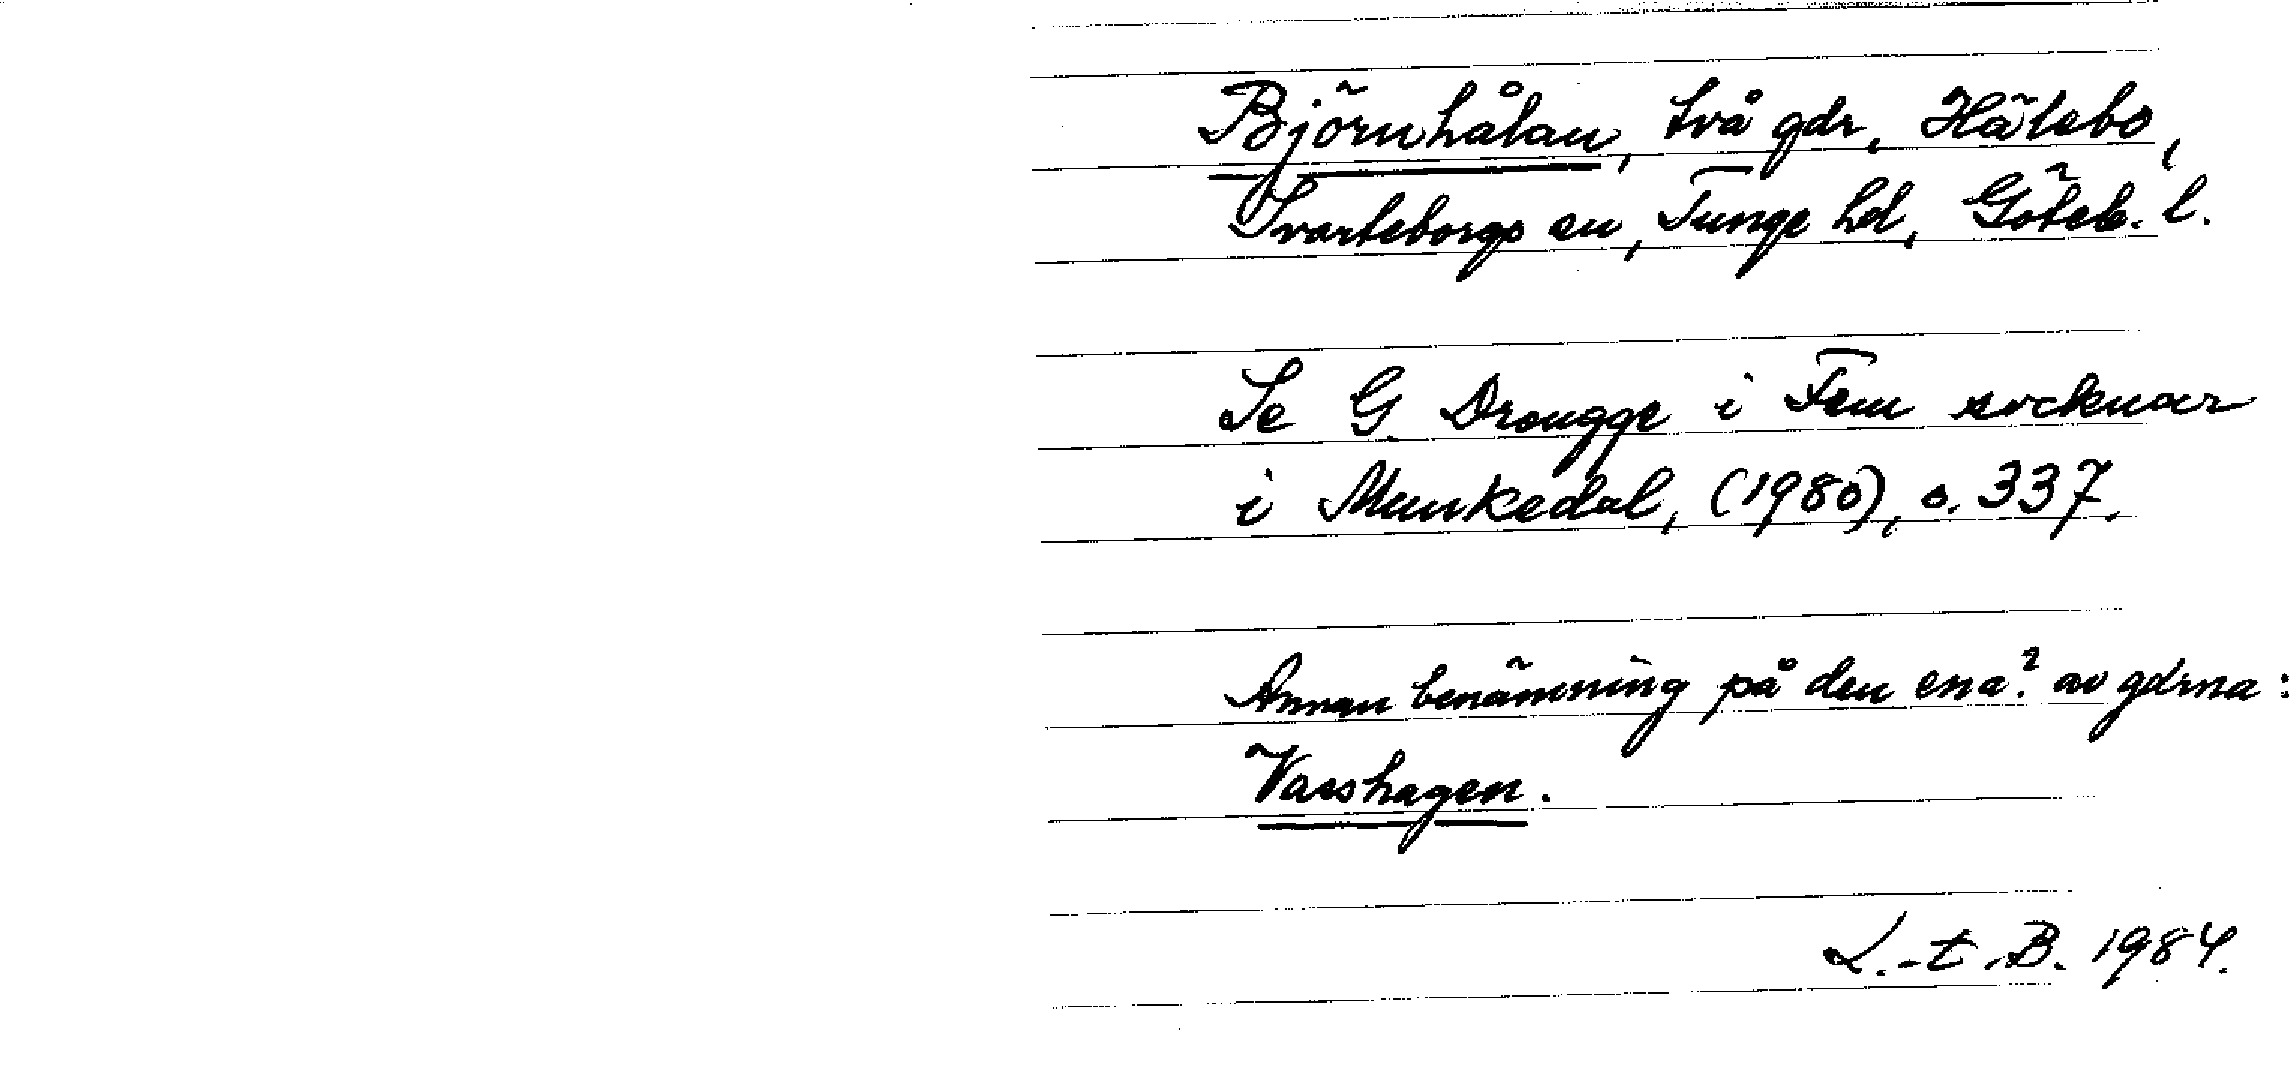 Björnhålan, två gdr, Hålebo,
Svarteborgs sn, Tunge hd, Göteb. l.
Se G. Drougge i Fem socknar
i Munkedal, (1980), s. 337.
Annan benämning på den ena? av gdrna:
Varshagen.
L.-t. B. 1984.